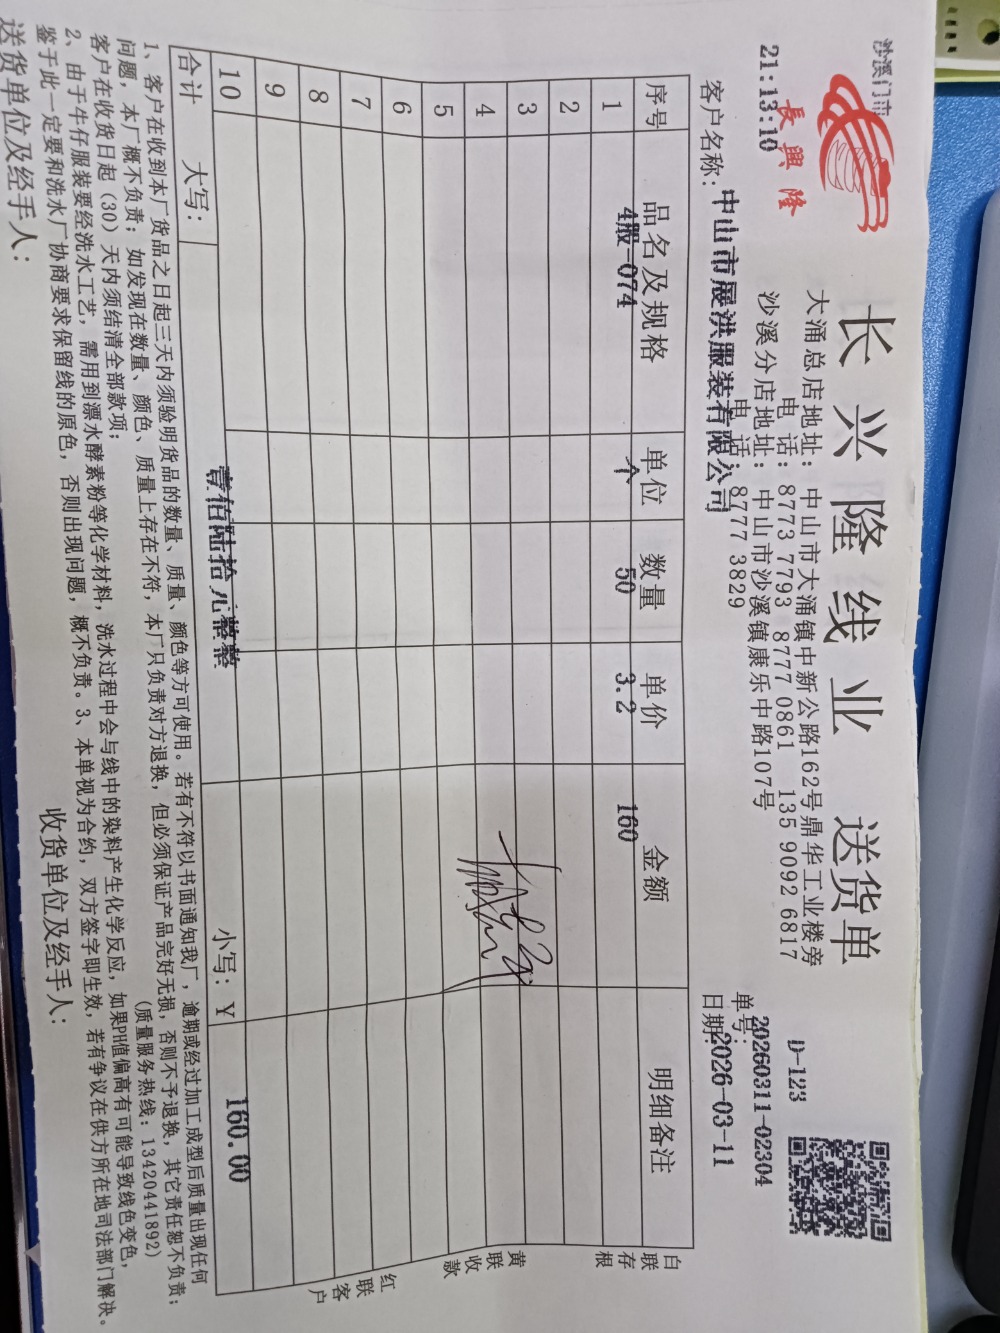 沙溪门市
長興隆
21:13:10
长兴隆线业 送货单
大涌总店地址：中山市大涌镇中新公路162号鼎华工业楼旁
电 话：8773 7793 8777 0861 135 9092 6817
沙溪分店地址：中山市沙溪镇康乐中路107号
电 话：8777 3829
D-123
单号：20260311-02304
客户名称：中山市展洪服装有限公司
日期：2026-03-11
序号 品名及规格 单位 数量 单价 金额 明细备注
1 4股-074 个 50 3.2 160
2
3
4
5
6
7
8
9
10
合计 大写：壹佰陆拾元整 小写：¥ 160.00
白联存根
黄联收款
红联客户
1、客户在收到本厂货品之日起三天内须验明货品的数量、质量、颜色等方可使用。若有不符以书面通知我厂，逾期或经过加工成型后质量出现任何
问题，本厂概不负责；如发现在数量、颜色、质量上存在不符，本厂只负责对方退换，但必须保证产品完好无损，否则不予退换，其它责任恕不负责；
客户在收货日起（30）天内须结清全部款项； （质量服务热线：13420441892）
2、由于牛仔服装要经洗水工艺，需用到漂水酵素粉等化学材料，洗水过程中会与线中的染料产生化学反应，如果PH值偏高有可能导致线色变色，
鉴于此一定要和洗水厂协商要求保留线的原色，否则出现问题，概不负责。3、本单视为合约，双方签字即生效，若有争议在供方所在地司法部门解决。
送货单位及经手人： 收货单位及经手人：